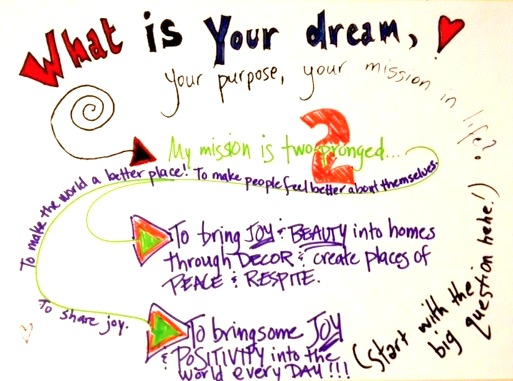 What is Your dream,
your purpose, your mission in life?
(start with the
big question hehe!)
2
My mission is two-pronged...
To make the world a better place! To make people feel better about themselves.
To share joy.
To bring JOY & BEAUTY into homes
through DECOR & create places of
PEACE & RESPITE.
To bring some JOY
& POSITIVITY into the
world every DAY!!!